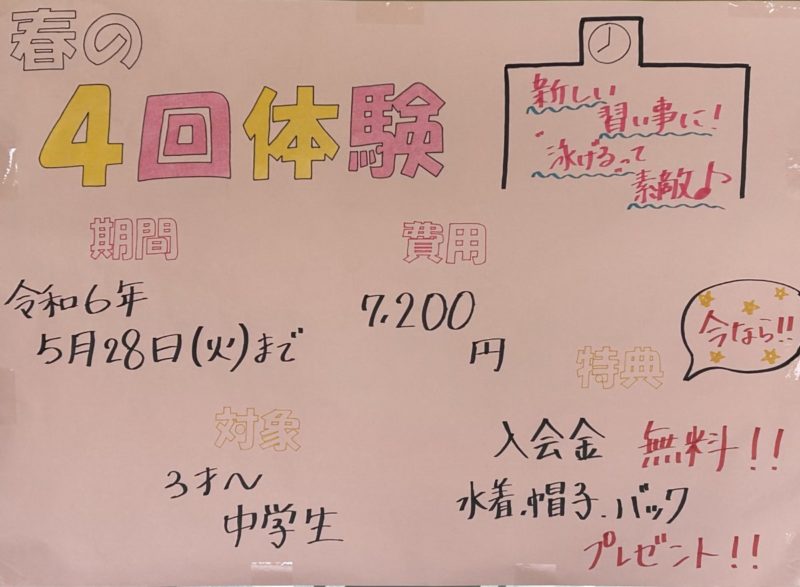 春の
4回体験
新しい
習い事に!
泳げるって
素敵♪
期間
令和6年
5月28日(火)まで
費用
7,200
円
対象
3才〜
中学生
今なら!!
特典
入会金 無料!!
水着、帽子、バック
プレゼント!!